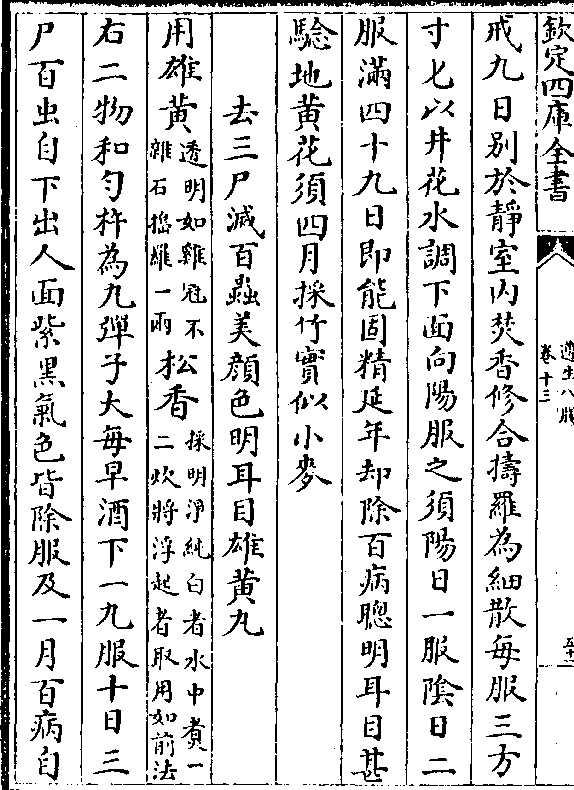 欽定四庫全書
遵生八牋
卷十三
戒九日别於靜室内焚香修合擣羅為細散每服三方
寸匕以井花水調下面向陽服之須陽日一服隂日二
服滿四十九日即能固精延年却除百病聰明耳目甚
驗地黄花須四月採竹實似小麥
去三尸滅百蟲美顔色明耳目雄黄丸
用雄黄透明如雞冠不雜石搗羅一兩松香採明淨純白者水中煑一二炊將浮起者取用如前法
右二物和勻杵為丸彈子大每早酒下一丸服十日三
尸百虫自下出人面紫黒氣色皆除服及一月百病自